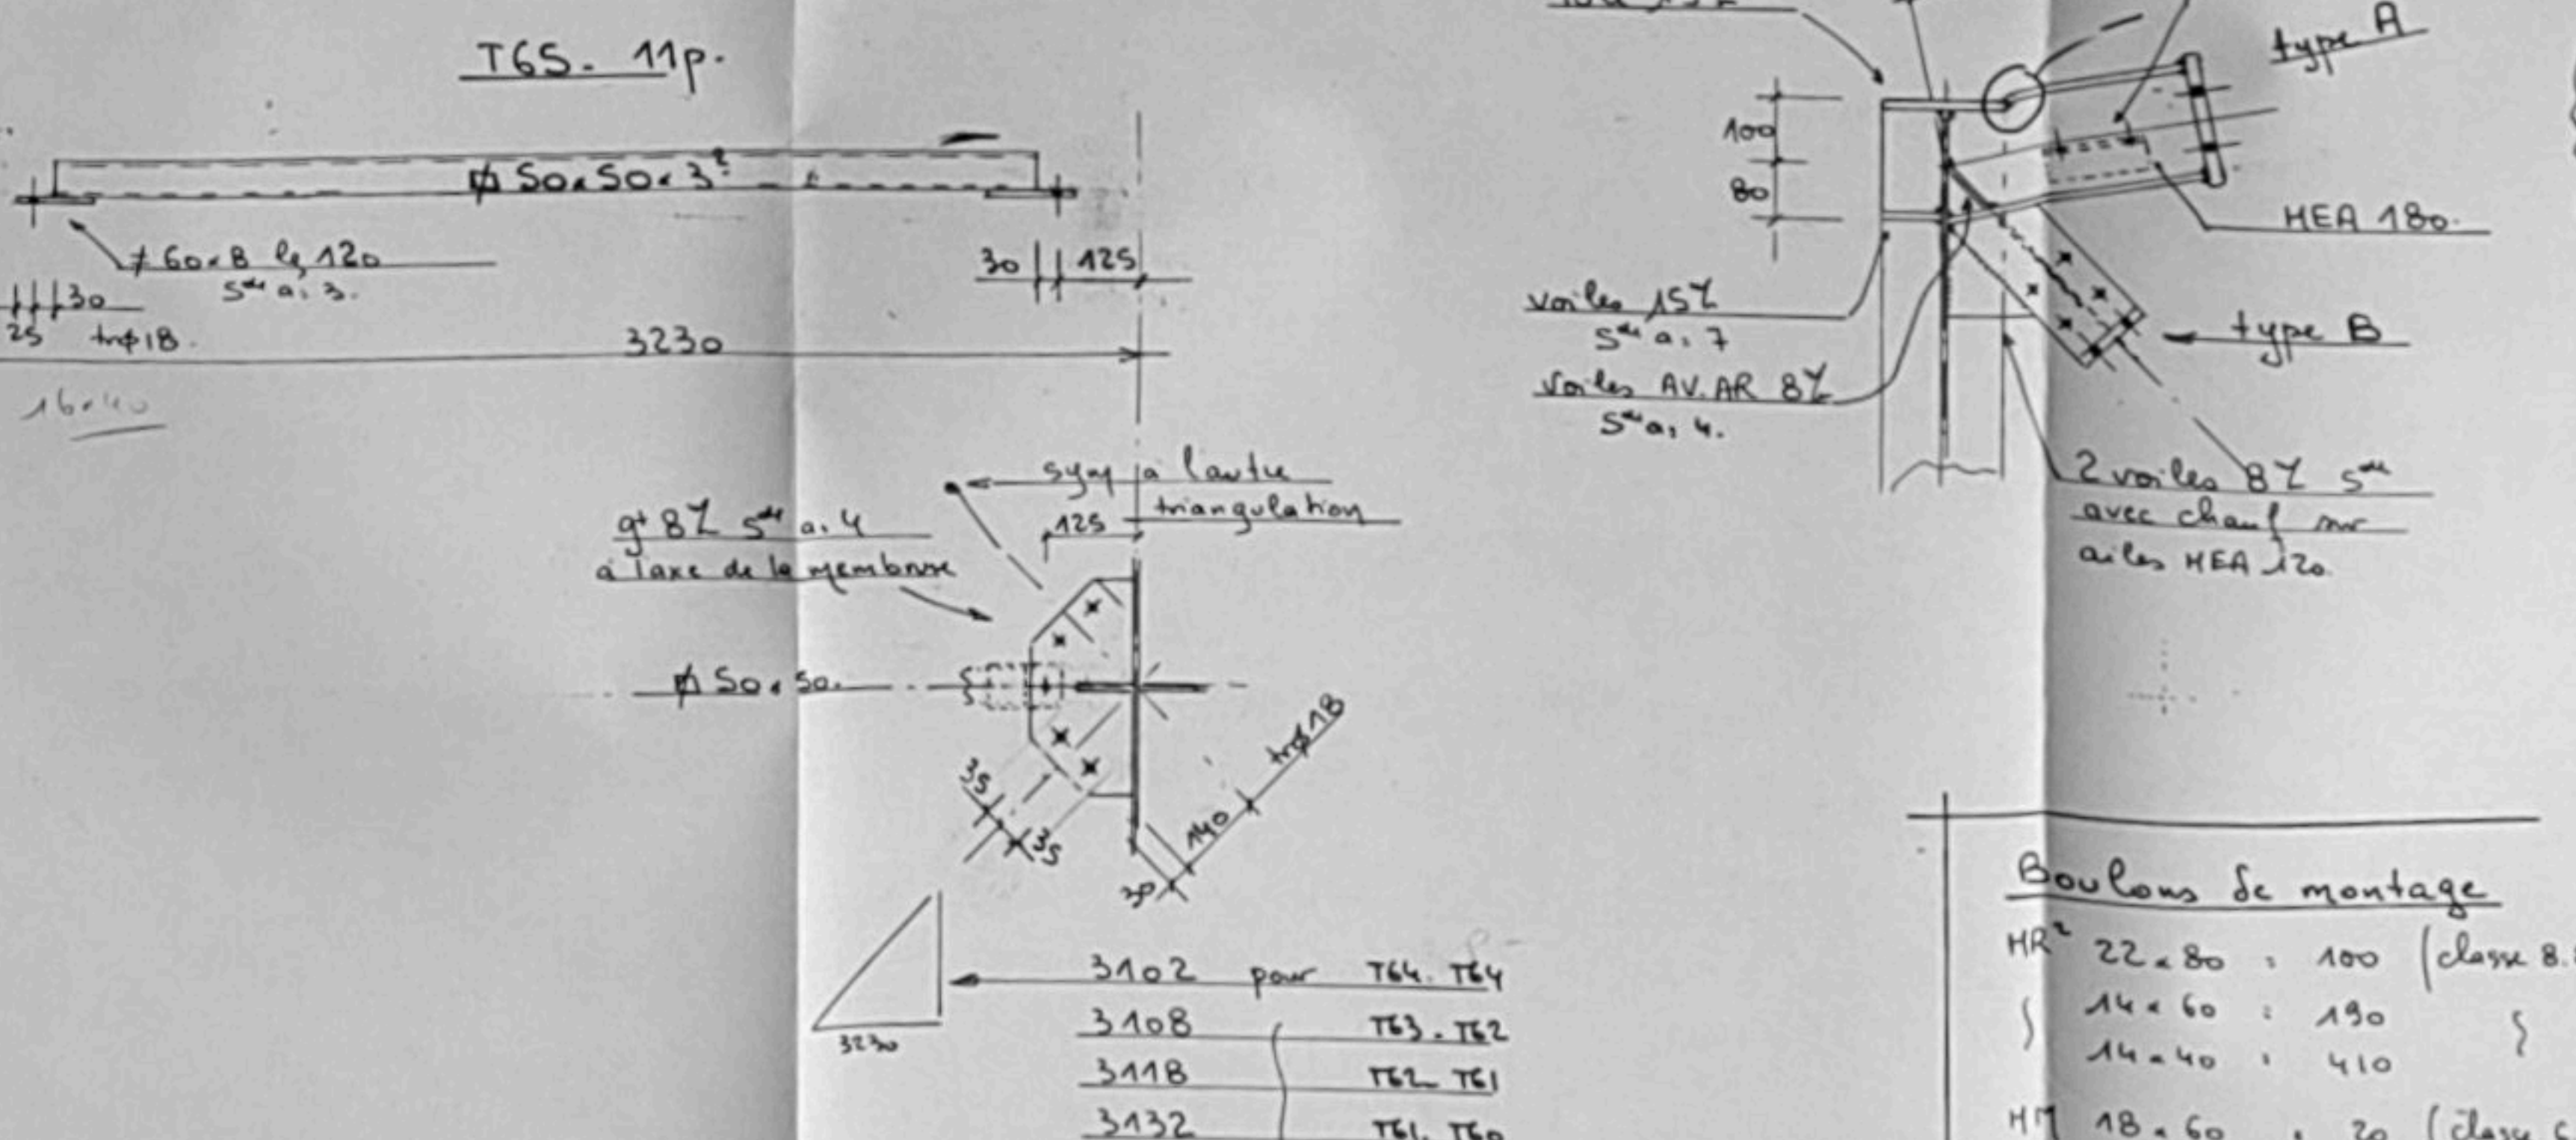 T65. 11p.
50x50x3²
≠ 60x8 lg 120
sde a: 3.
30
25 trø18.
30 125
3230
16x40
sym à l'autre
triangulation
125
gt 8% sde a: 4
à l'axe de la membrure
50x50.
35
35
30
140
trø18
3230
3102 pour T64. T64
3108 T63. T62
3118 T62 T61
3132 T61. T60
type A
100
80
HEA 180.
voiles 15%
sde a: 7
voiles AV.AR 8%
sde a: 4.
type B
2 voiles 8% sde
avec chanf sur
ailes HEA 120.
Boulons de montage
HR² 22x80 : 100 (classe 8.
14x60 : 190
14x40 : 410
HM 18x60 : 20 (classe